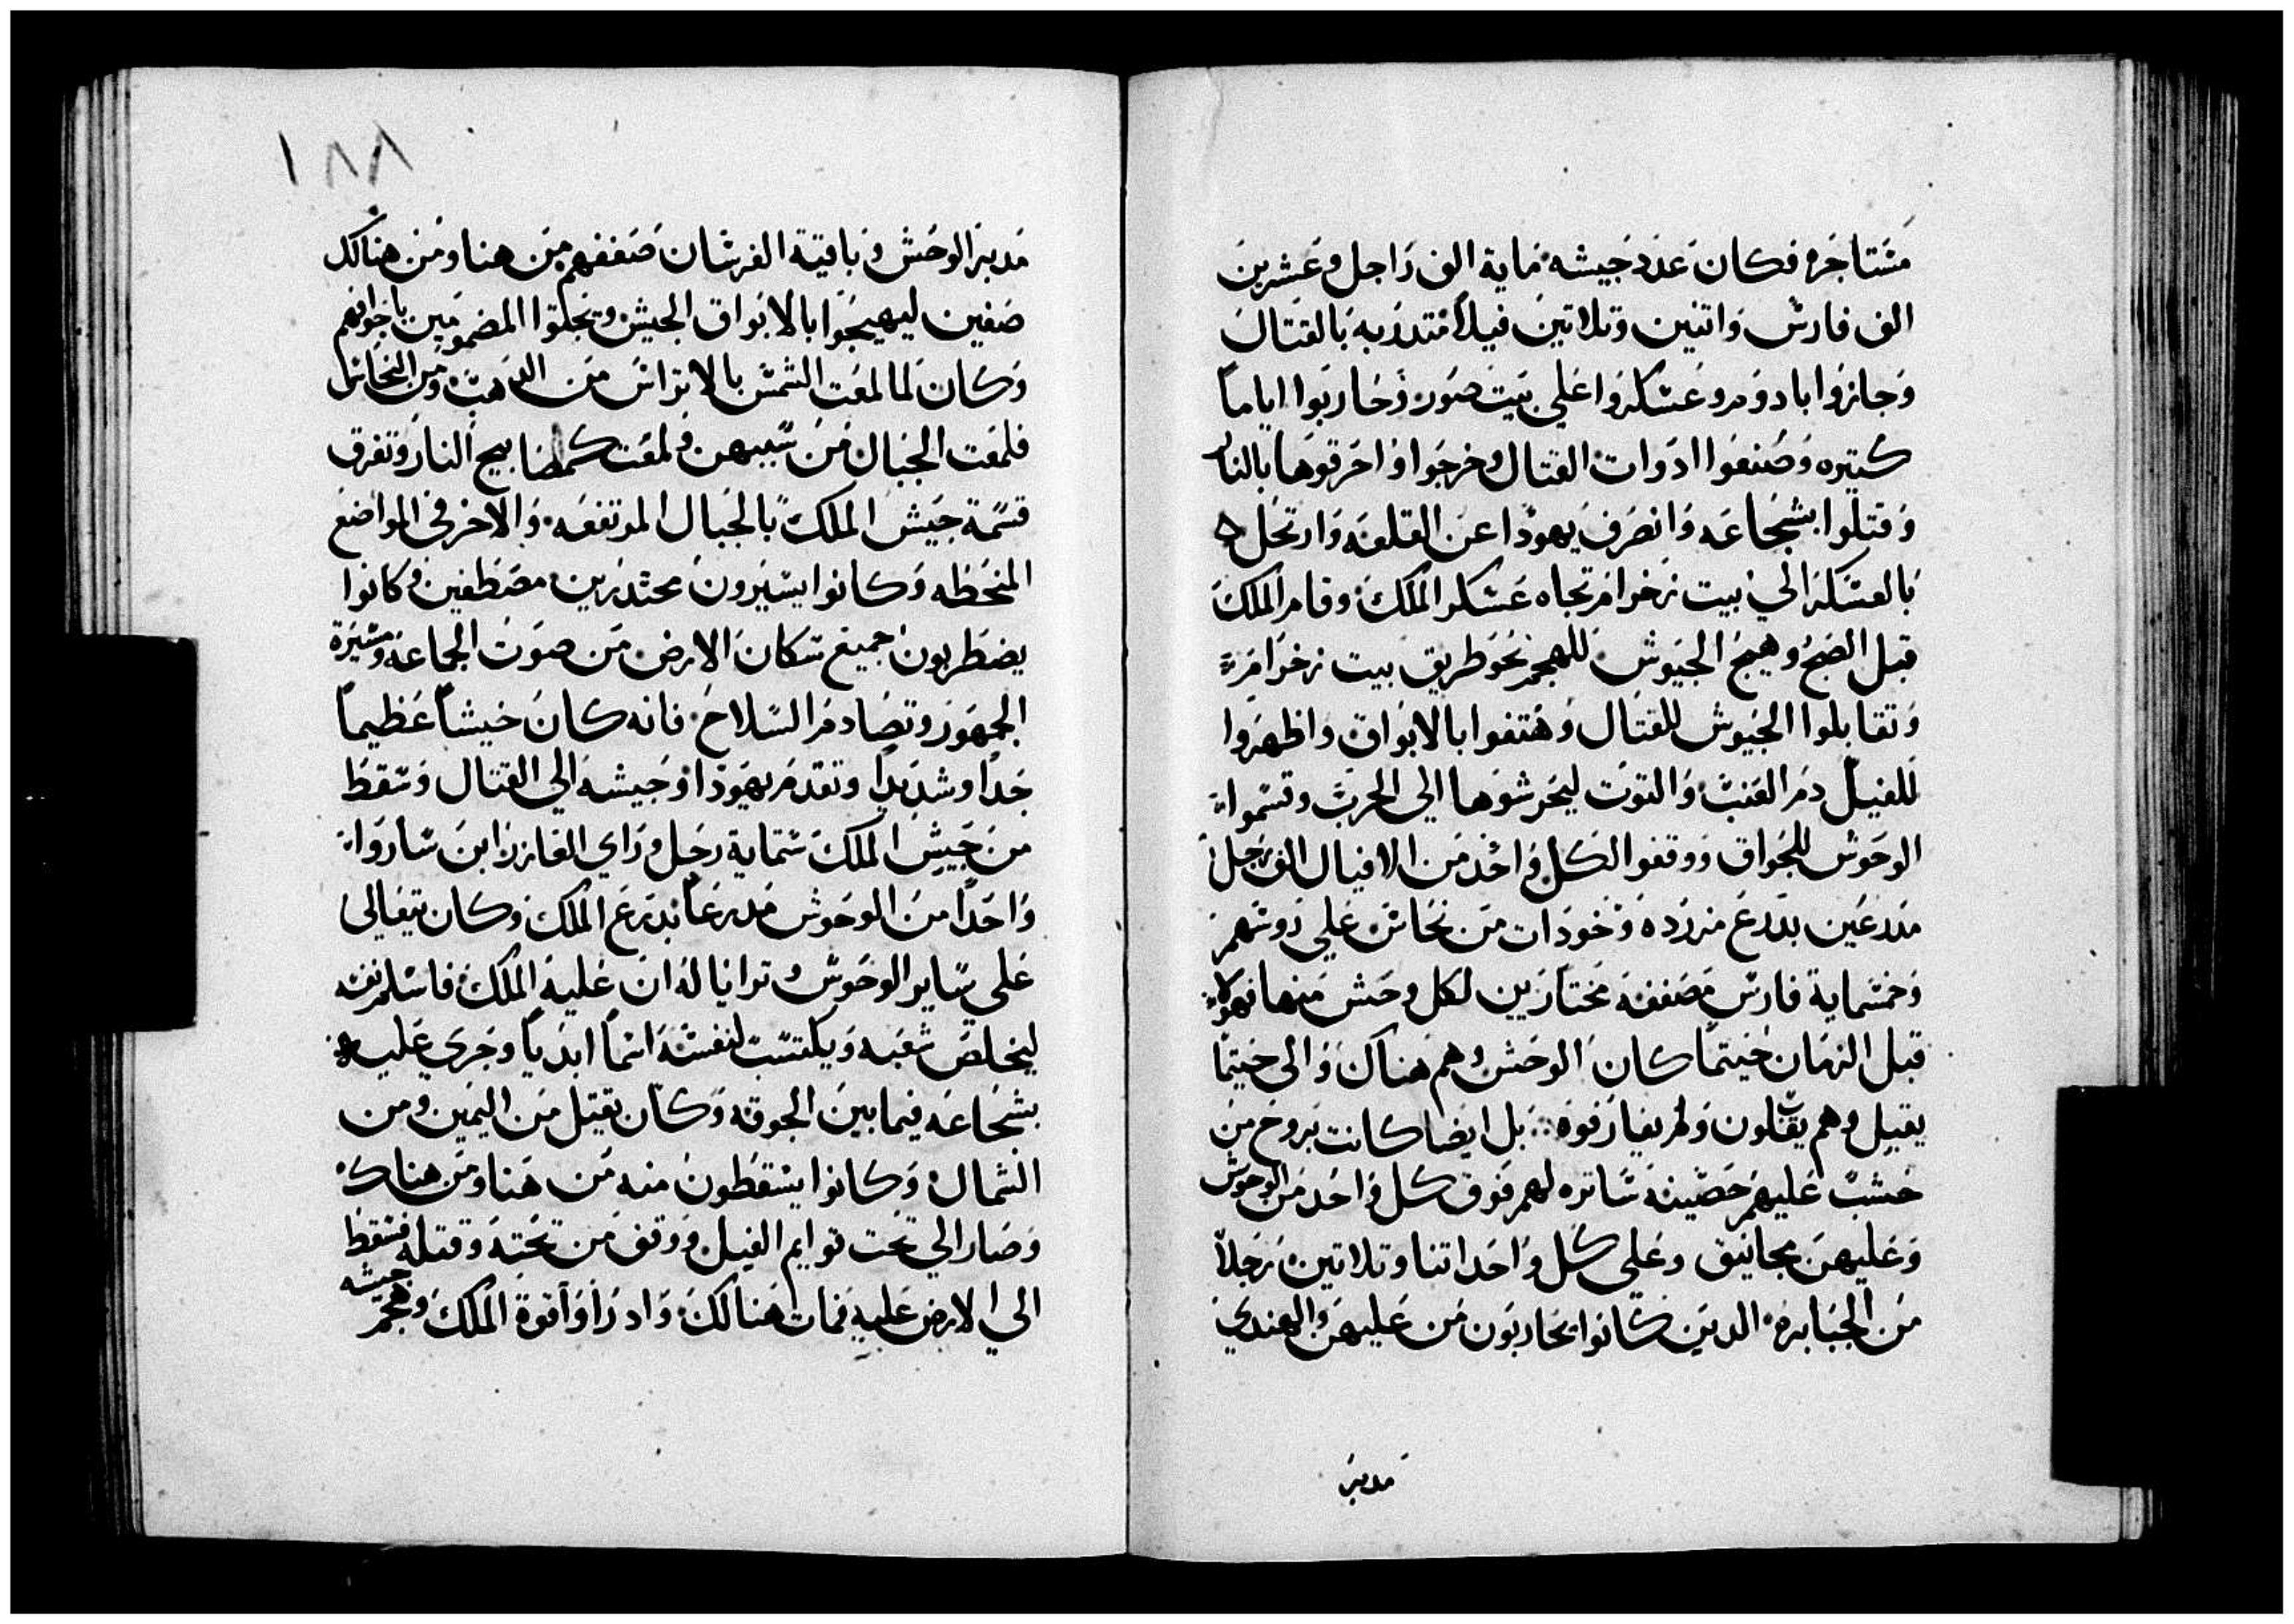 مستاجره فكان عدد جيشه ماية الف راجل وعشرين
الف فارس واتنين وتلاتين فيلاً متدربه بالقتال
وجازوا بادوم وعسكروا على بيت صور وحاربوا اياماً
كتيره وصنعوا ادوات القتال وخرجوا واحرقوها بالنار
وقتلوا بشجاعه وانصرف يهودا عن القلعه وارتحل
بالعسكر الي بيت زخرام تجاه عسكر الملك وقام الملك
قبل الصبح وهيج الجيوش للهجم نحو طريق بيت زخرام
وتقابلوا الجيوش للقتال وهتفوا بالابواق واظهروا
للفيل دم العنب والتوت ليحرشوها الي الحرب وقسموا
الوحوش للجواق ووقفوا لكل واحد من الافيال الف رجل
مدرعين بدرع مزرده وخودات من نحاس علي روسهم
وخمسماية فارس مصففه مختارين لكل وحش منها فهولاء
قبل الزمان حيتما كان الوحش وهم هناك والى حيتما
يقبل وهم يقبلون ولم يفارقوه بل ايضا كانت بروج من
خشب عليهم حصينه ساتره لهم فوق كل واحد من الوحوش
وعليهن مجانيق وعلي كل واحد اتنا وتلاتين رجلاً
من الجبابره الدين كانوا يحاربون من عليهن والهندي
مدبر
١٨٨
مدبر الوحش وباقية الفرسان صففهم من هنا ومن هنالك
صفين ليهيجوا بالابواق الجيش ويحلقوا المضمومين باجواقهم
وكان لما لمعت الشمس بالاتراس من الدهب ومن النحاس
فلمعت الجبال من سببهن ولمعت كمصابيح النار وتفرق
قسمة جيش الملك بالجبال المرتفعه والاخر في المواضع
المنحطه وكانوا يسيرون محتدرين مصطفين وكانوا
يضطربون جميع سكان الارض من صوت الجماعه ومسيرة
الجمهور وتصادم السلاح فانه كان جيشاً عظيماً
جداً وشديداً وتقدم يهودا وجيشه الي القتال وسقط
من جيش الملك ستماية رجل وراي العازر ابن ساروا
واحداً من الوحوش مدرعاً بدرع الملك وكان يتعالى
على ساير الوحوش وترايا له ان عليه الملك فاسلم نفسه
ليخلص شعبه ويكتسب لنفسه اسماً ابدياً وجري عليه
بشجاعه فيما بين الجوقه وكان يقتل من اليمين ومن
الشمال وكانوا يسقطون منه من هنا ومن هناك
وصار الي تحت قوايم الفيل ووقف من تحته وقتله فسقط
الي الارض عليه فمات هنالك واد راوا قوة الملك وهجم جيشه